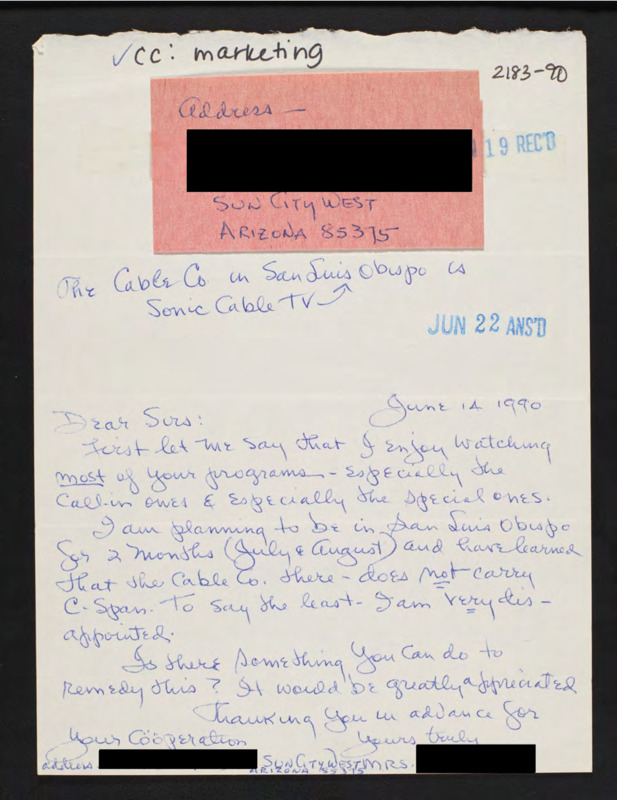 ✓cc: marketing
2183-90
Address —
19 REC'D
SUN CITY WEST
ARIZONA 85375
The Cable Co in San Luis Obispo is
Sonic Cable TV
JUN 22 ANS'D
June 14 1990
Dear Sirs:
First let me say that I enjoy watching
most of your programs - especially the
call-in ones & especially the special ones.
I am planning to be in San Luis Obispo
for 2 months (July & August) and have learned
that the Cable Co. there - does not carry
C-Span. To say the least - I am very dis-
appointed.
Is there something you can do to
remedy this? It would be greatly appreciated
Thanking you in advance for
your Cööperation
yours truly
address
SUN CITY WEST MRS.
ARIZONA 85375